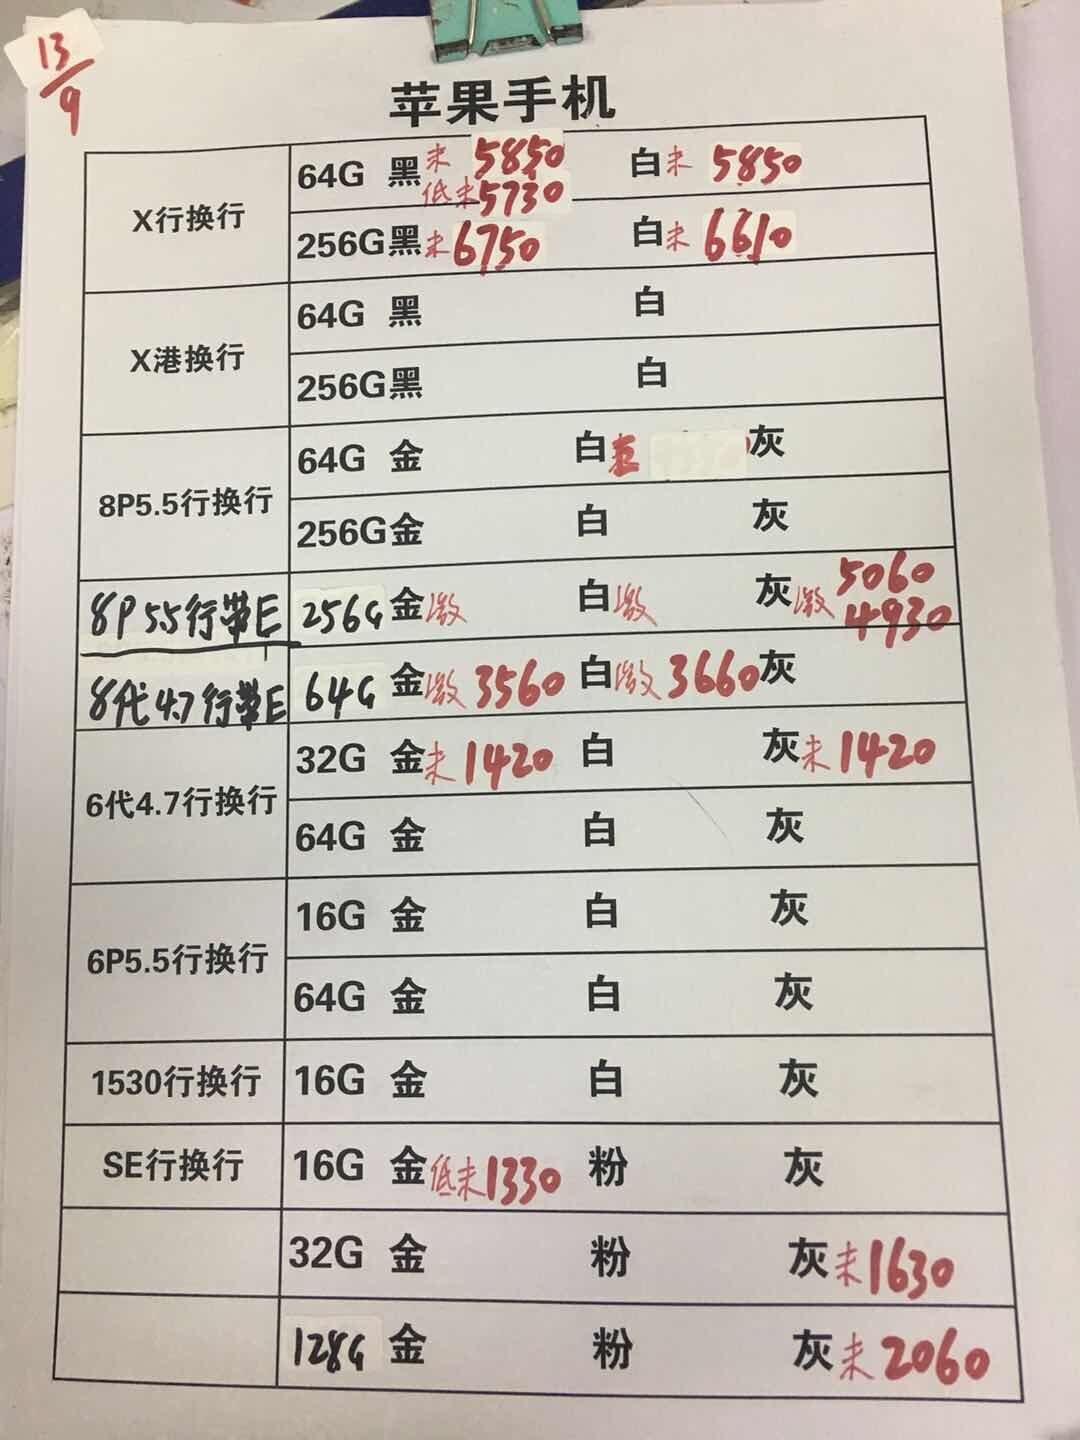 13/9
苹果手机
X行换行 64G 黑 未 5850 白 未 5850
低未 5730
256G 黑 未 6750 白 未 6610
X港换行 64G 黑 白
256G 黑 白
8P5.5行换行 64G 金 白 灰
256G 金 白 灰
8P 5.5行带E 256G 金 激 白 激 灰 激 5060
4930
8代4.7行带E 64G 金 激 3560 白 激 3660 灰
6代4.7行换行 32G 金 未 1420 白 灰 未 1420
64G 金 白 灰
6P5.5行换行 16G 金 白 灰
64G 金 白 灰
1530行换行 16G 金 白 灰
SE行换行 16G 金 低未 1330 粉 灰
32G 金 粉 灰 未 1630
128G 金 粉 灰 未 2060